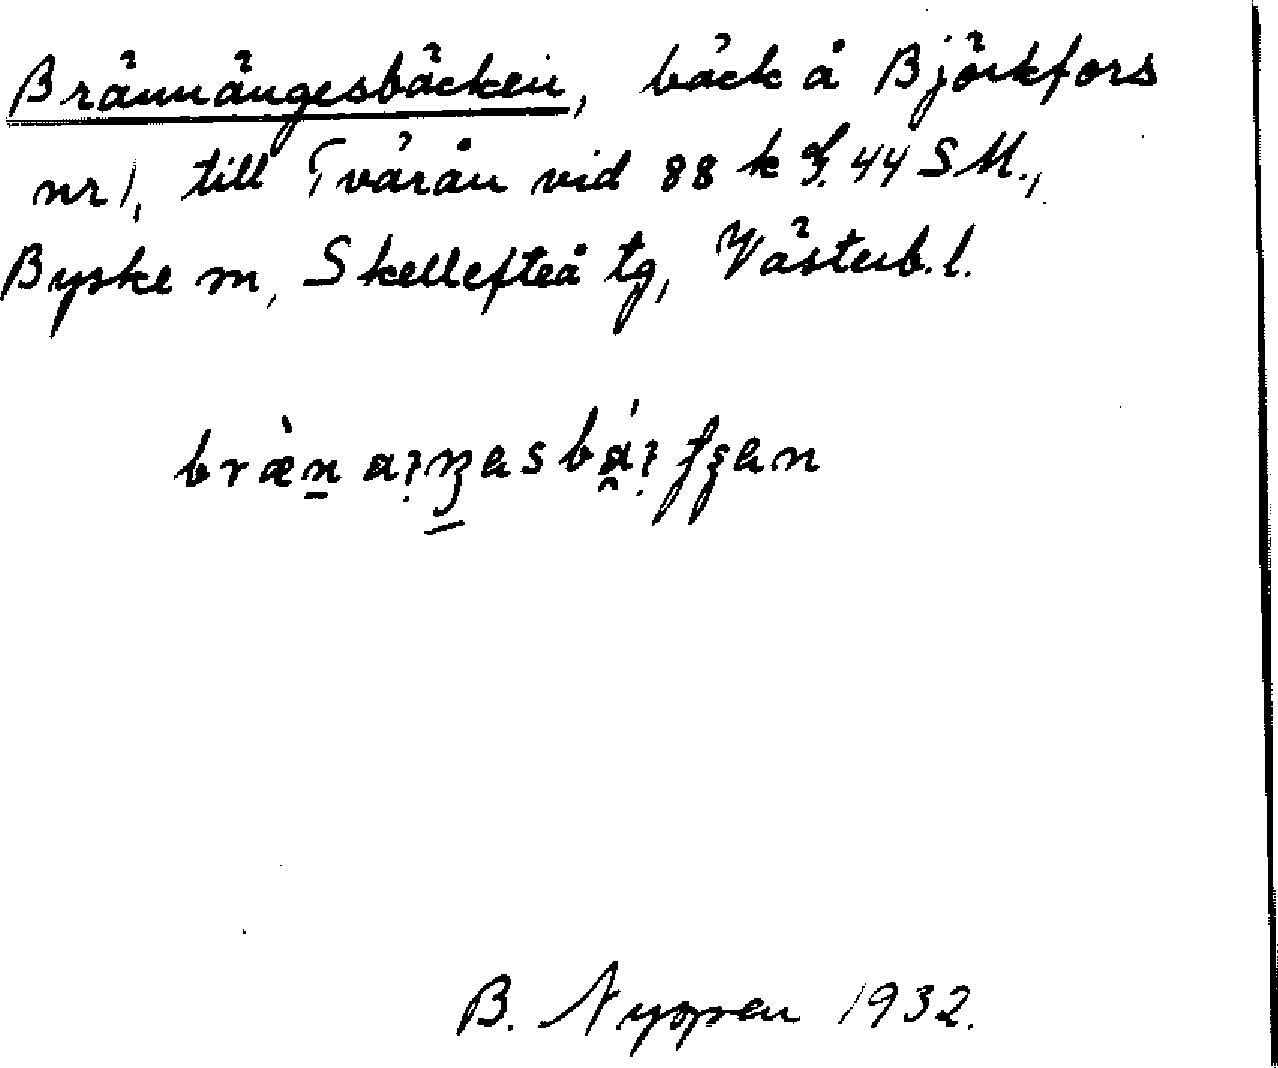 Brännängesbäcken, bäck å Björkfors
nr 1, till Tvärån vid 88 k 44 SM.,
Byske sn, Skellefteå tg, Västerb. l.
B. Nyqren 1932.